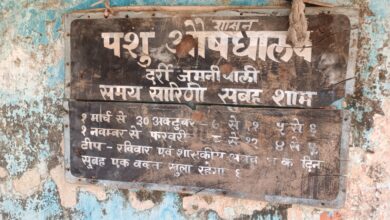 शासन
पशु औषधालय
दर्री जमनीपाली
समय सारिणी सुबह शाम
१ मार्च से ३० अक्टूबर ८ से ११ ५ से ६
१ नवम्बर से फरवरी से १२ ४ से ५
टीप - रविवार एवं शासकीय के दिन
सुबह एक वक्त खुला रहेगा